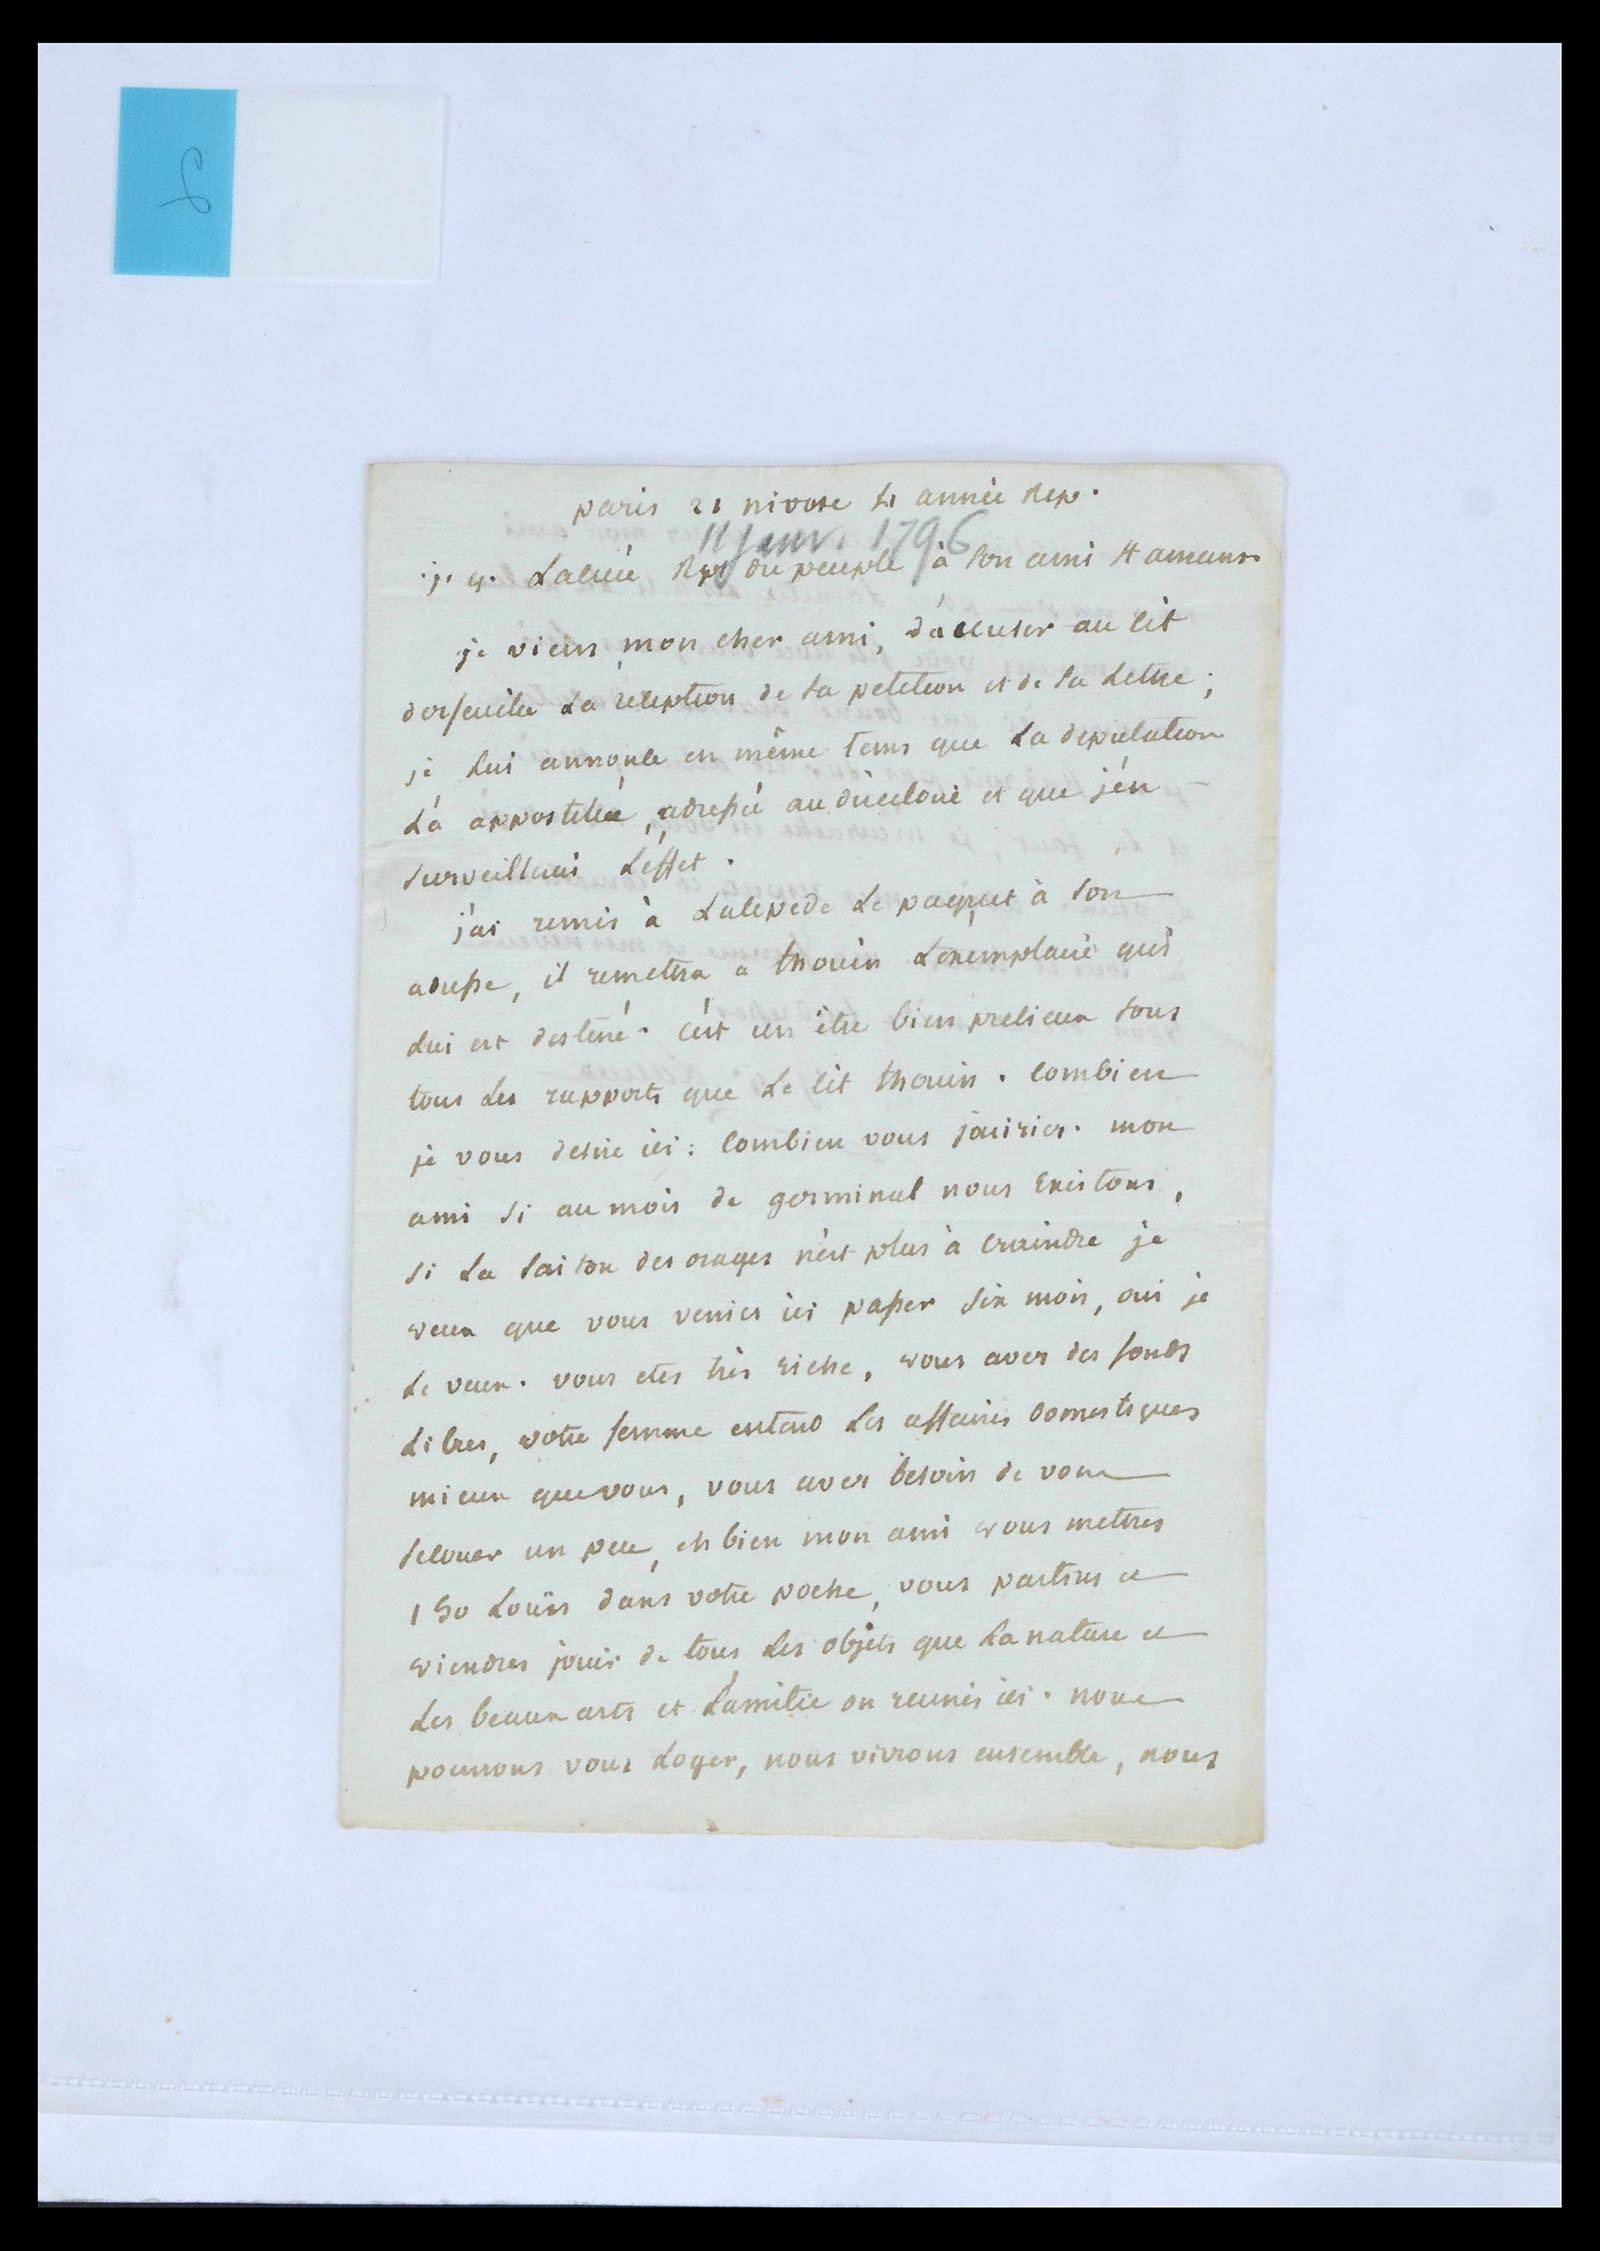 paris 21 nivose 4 année Rep.
11 janv. 1796
j. g. Lacuée Rep du peuple à son ami St amans
je viens mon cher ami, d'accuser au cit
dorfeuille la réception de sa petition et de sa lettre ;
je lui annonce en même tems que la deputation
l'a appostillée, adressée au directoire et que j'en
surveillerai l'effet.
j'ai remis à Lacepede le paquet à son
adresse, il remettra a thouin l'exemplaire qui
lui est destiné. c'est un être bien precieux sous
tous les rapports que le cit thouin. combien
je vous desire ici : combien vous jouiries. mon
ami si au mois de germinal nous existons,
si la saison des orages n'est plus à craindre je
veux que vous venies ici passer six mois, oui je
le veux. vous etes très riche, vous aves des fonds
libres, votre femme entend les affaires domestiques
mieux que vous, vous aves besoin de vous
secouer un peu, eh bien mon ami vous mettres
150 Louis dans votre poche, vous partires et
viendres jouir de tous les objets que la nature et
les beaux arts et l'amitie on reunis ici. nous
pouvons vous loger, nous vivrons ensemble, nous